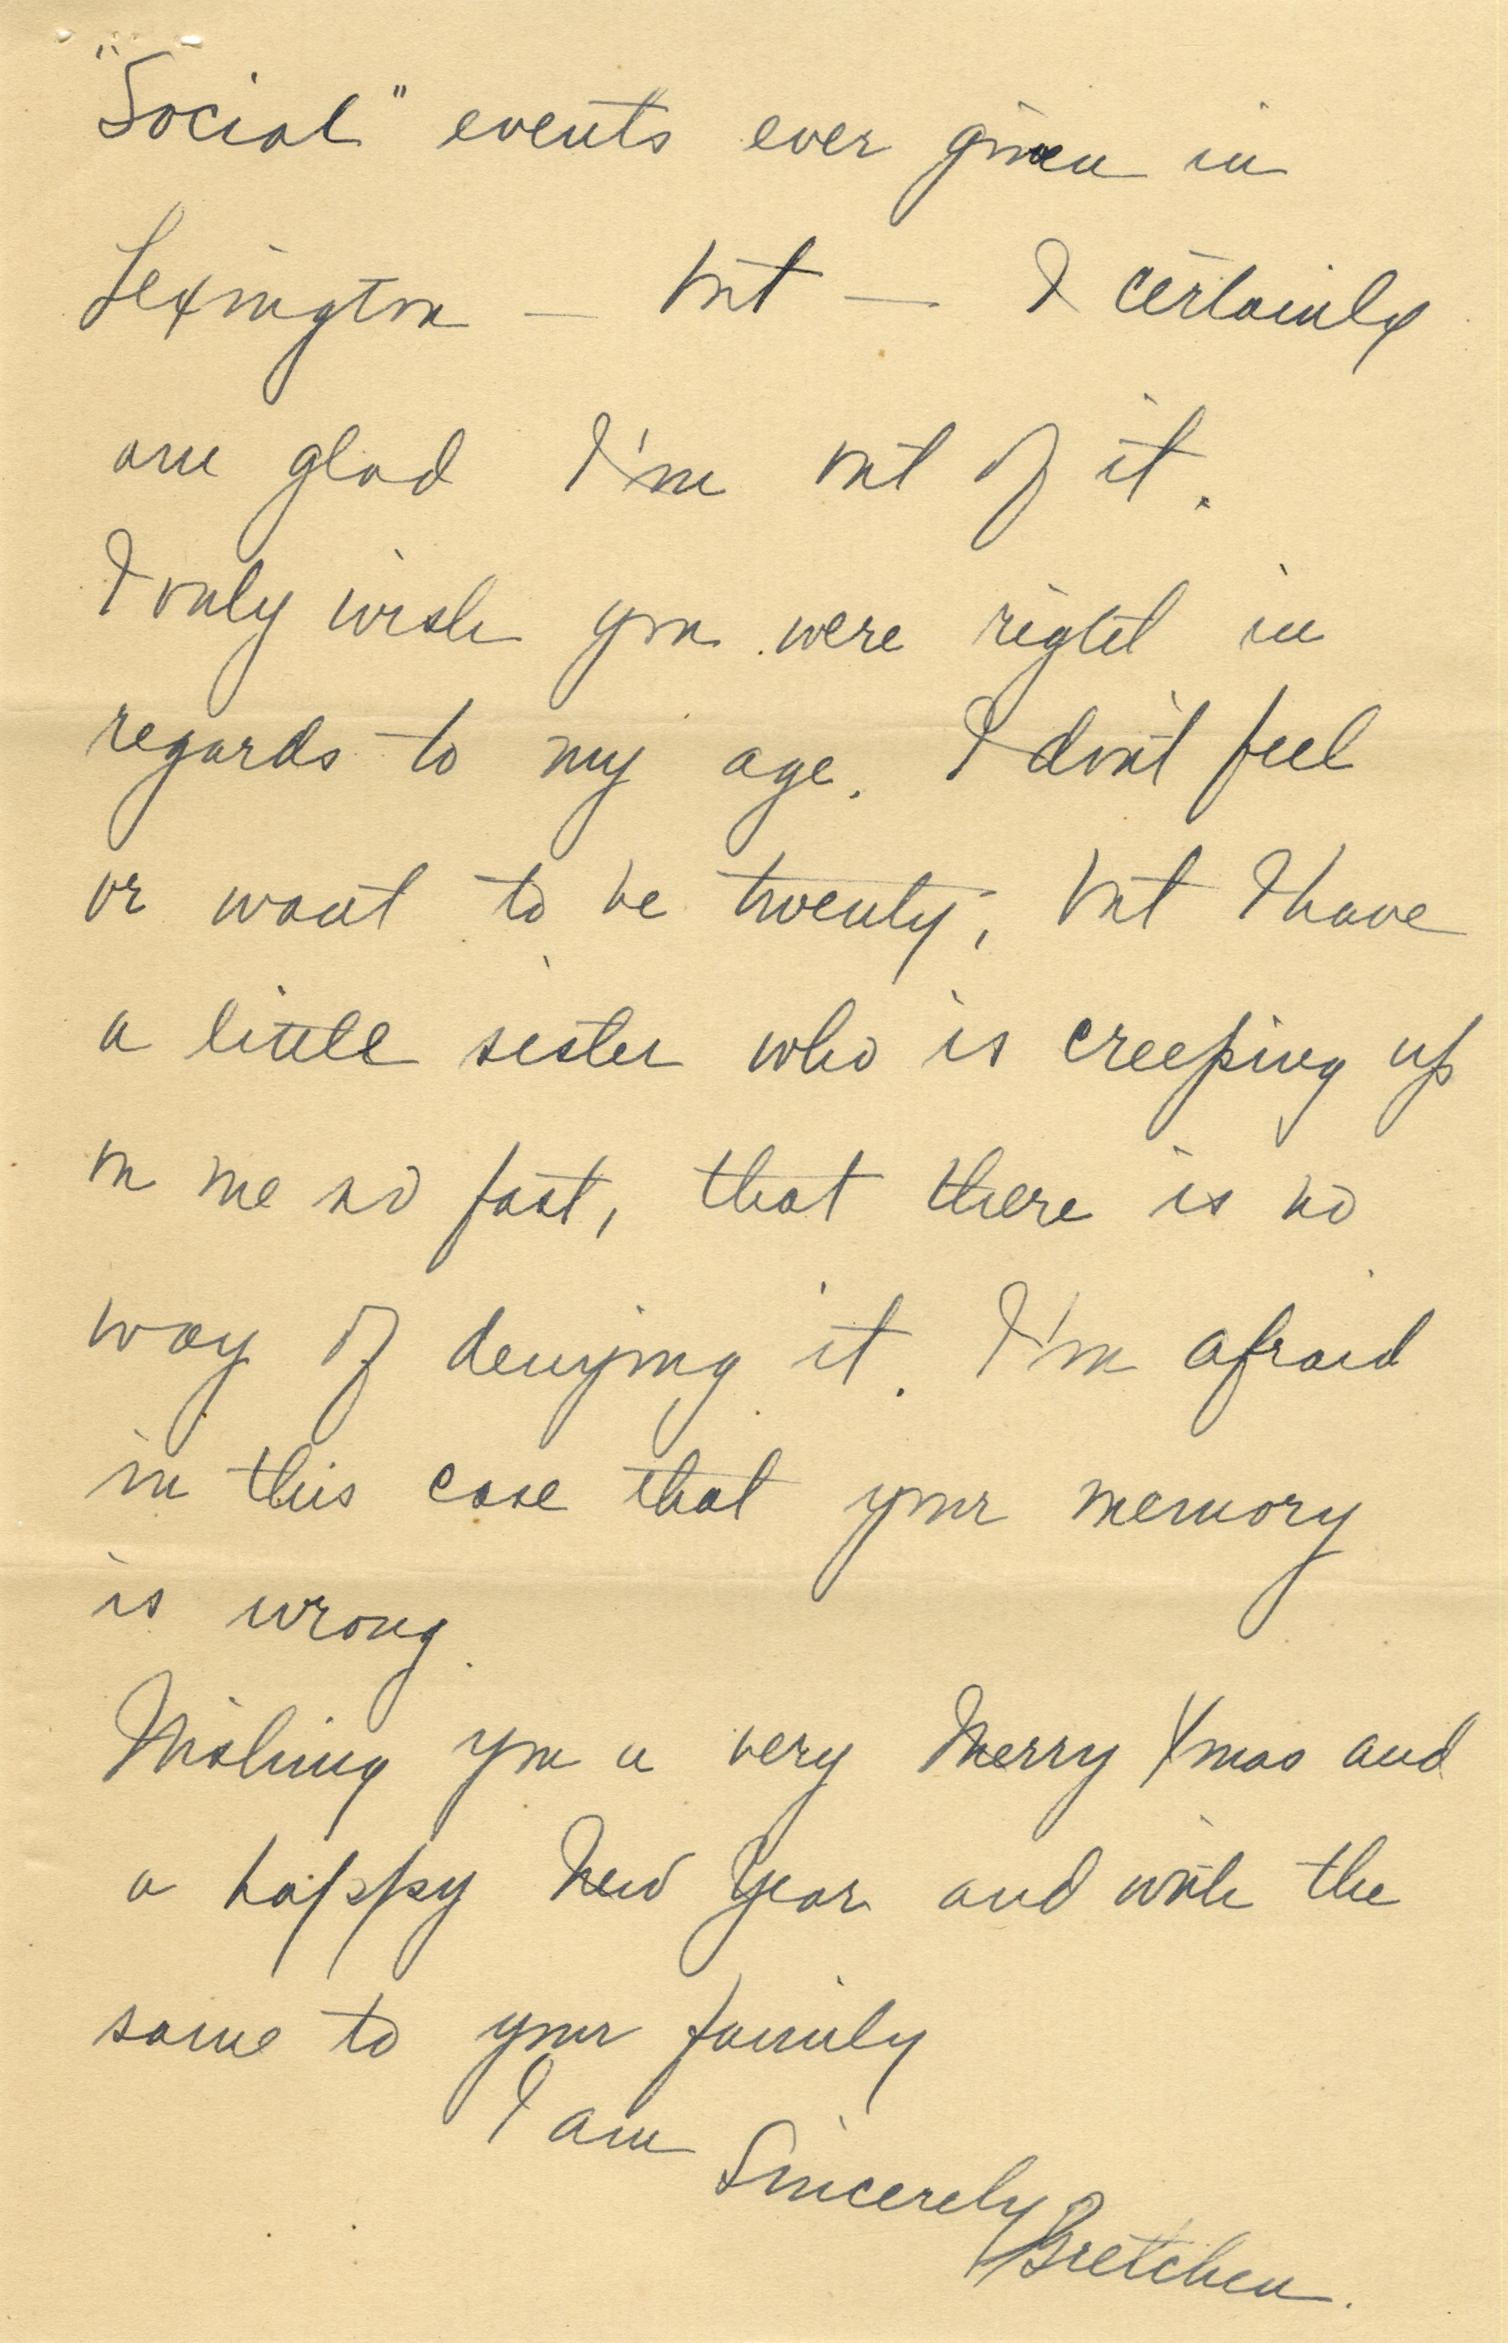 "Social" events ever given in
Lexington — but — I certainly
am glad I'm out of it.
I only wish you were right in
regards to my age. I don't feel
or want to be twenty, but I have
a little sister who is creeping up
on me so fast, that there is no
way of denying it. I'm afraid
in this case that your memory
is wrong.
Wishing you a very Merry Xmas and
a happy New Year and with the
same to your family
I am
Sincerely
Gretchen.